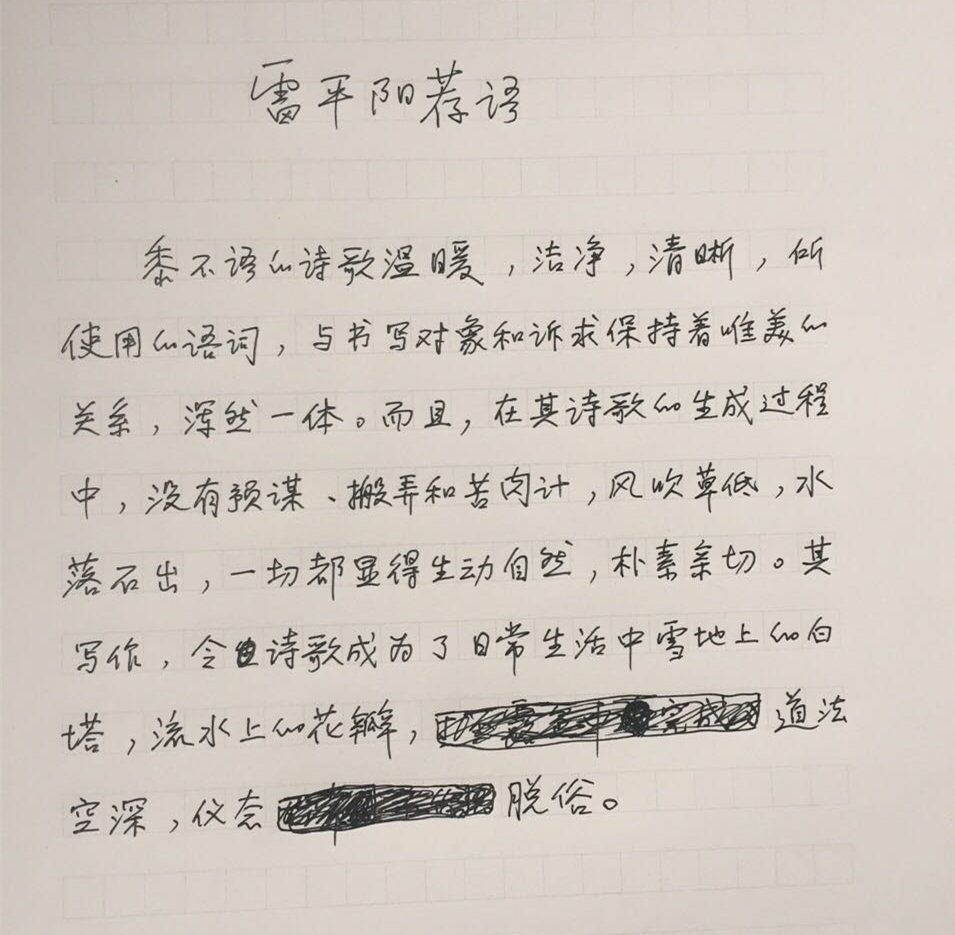 雷平阳荐语
黍不语的诗歌温暖，洁净，清晰，所
使用的语词，与书写对象和诉求保持着唯美的
关系，浑然一体。而且，在其诗歌的生成过程
中，没有预谋、搬弄和苦肉计，风吹草低，水
落石出，一切都显得生动自然，朴素亲切。其
写作，令诗歌成为了日常生活中雪地上的白
塔，流水上的花瓣，道法
空深，仪态脱俗。